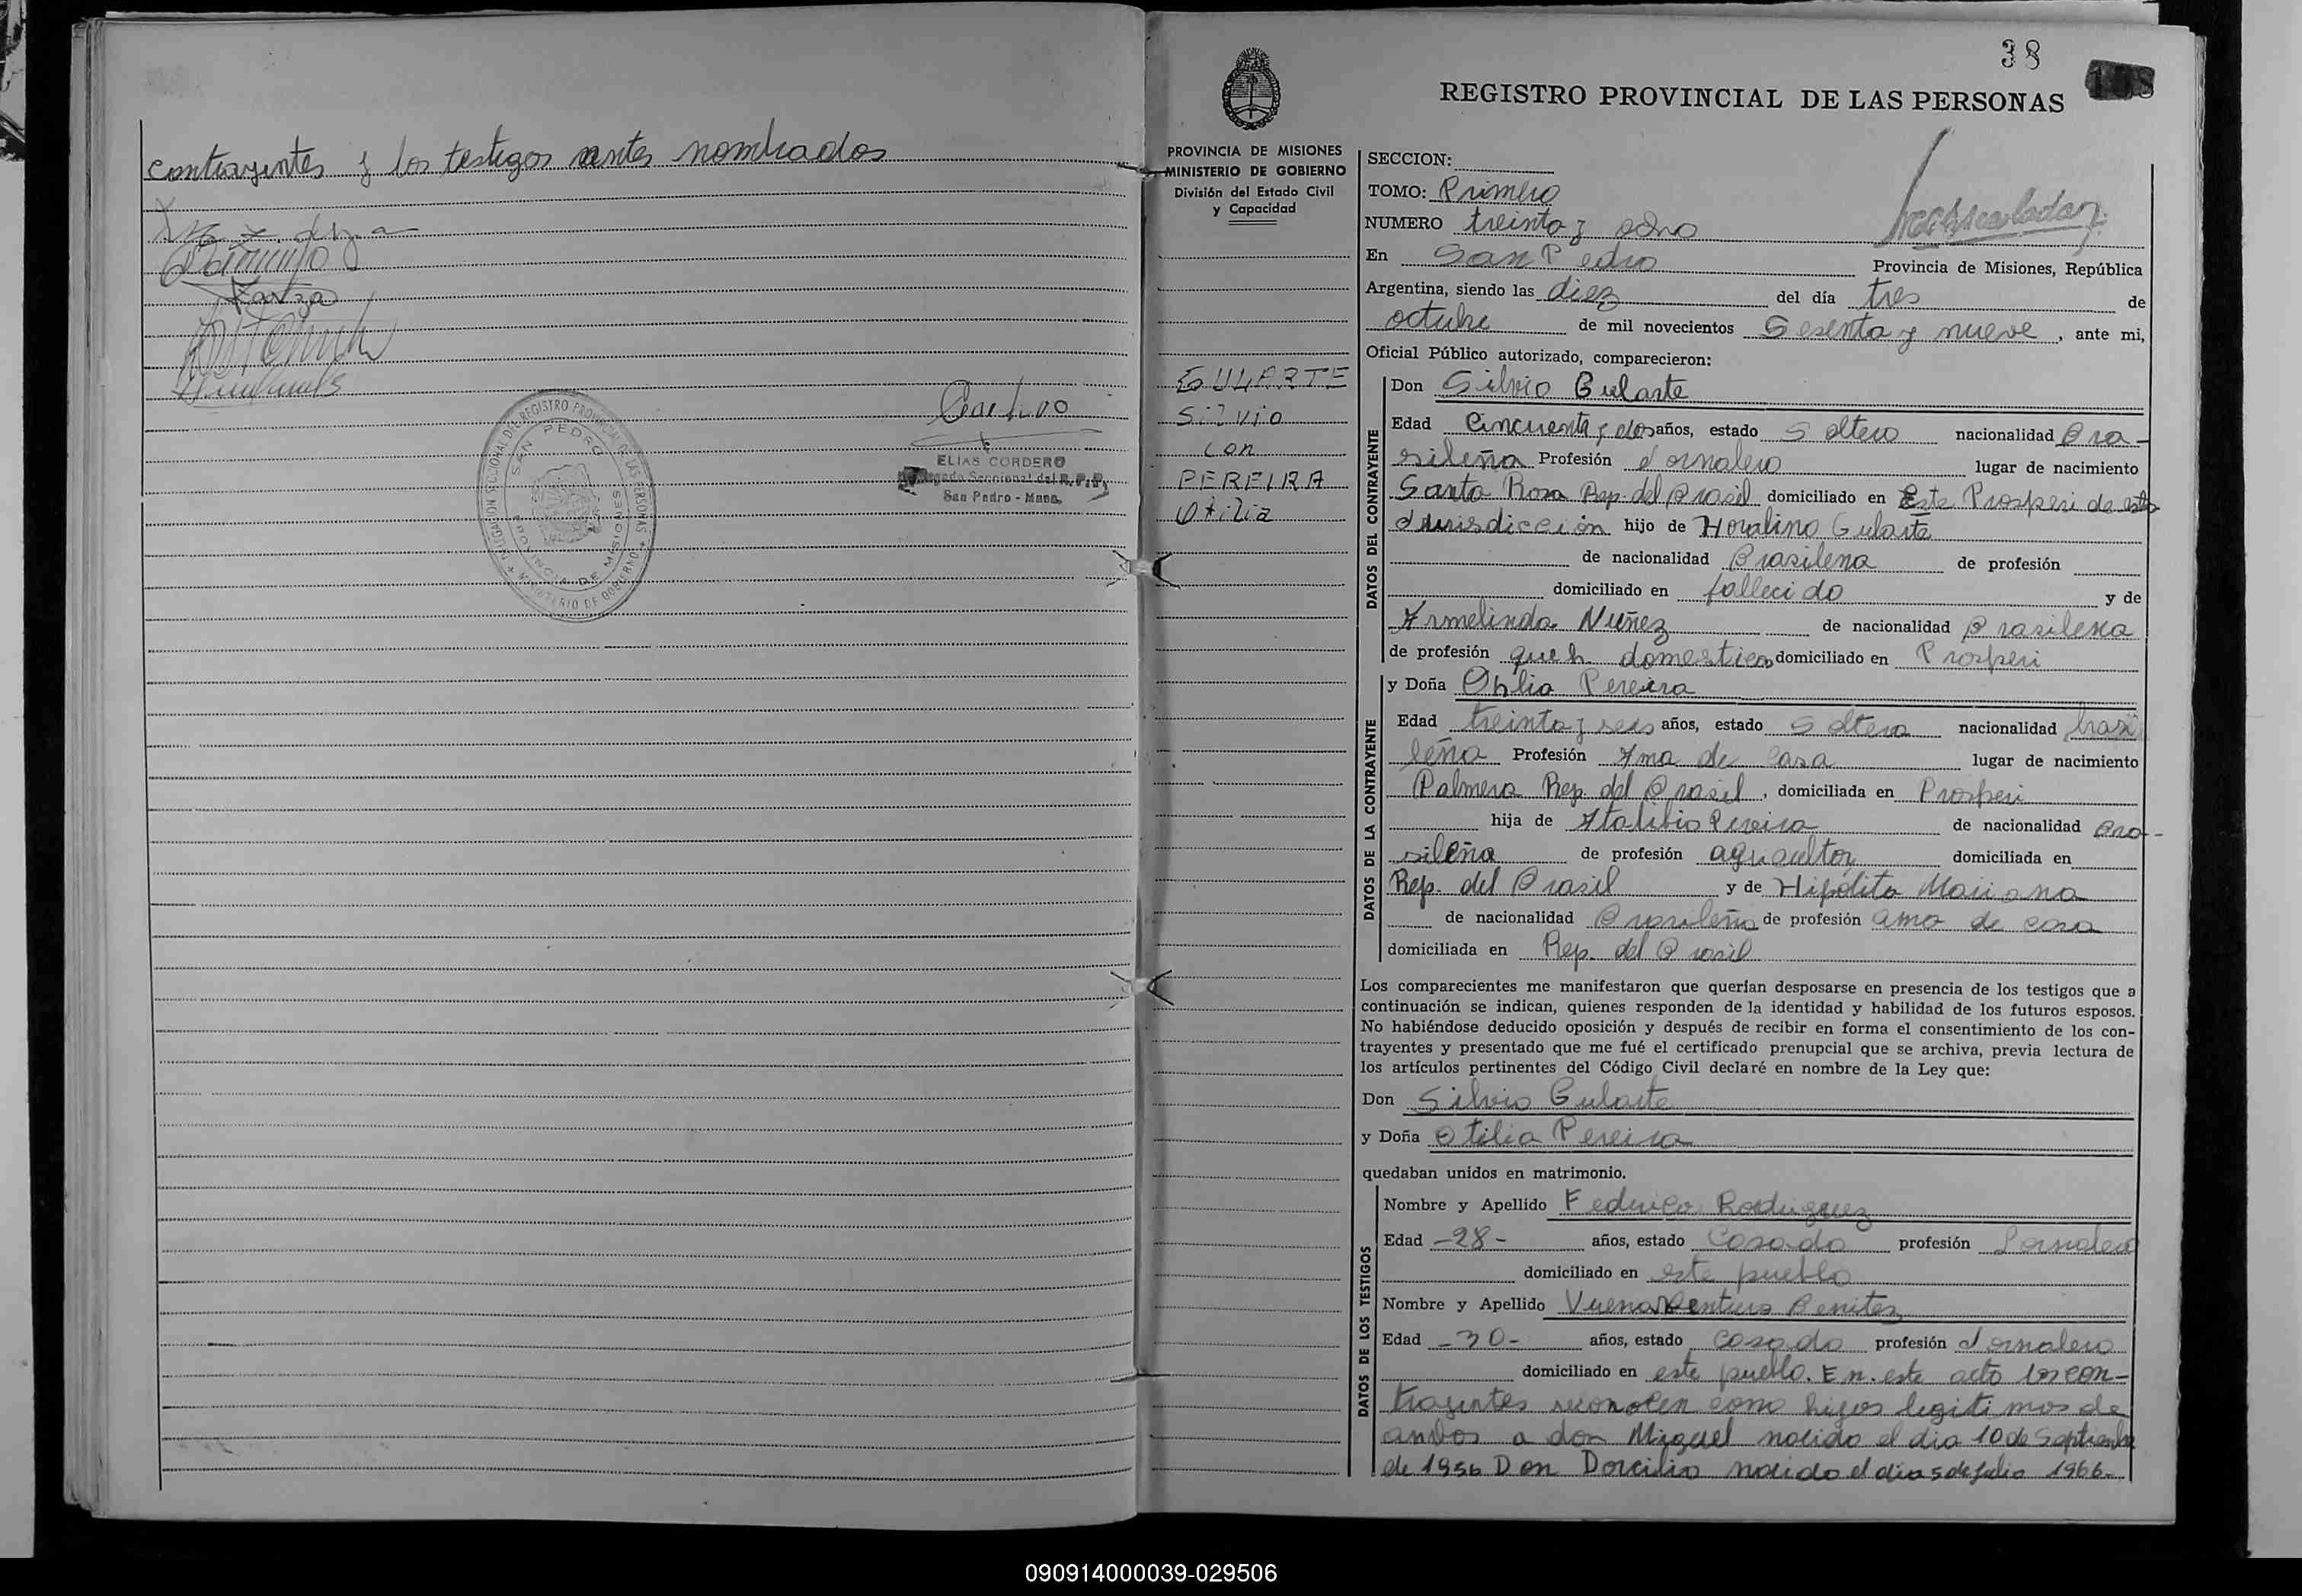 contrayentes y los testigos antes nombrados
Karza
ELIAS CORDERO
Delegado Seccional del R.P.P.
San Pedro - Mnes.
DELEGACION SECCIONAL DEL REGISTRO PROVINCIAL DE LAS PERSONAS
SAN PEDRO
PROVINCIA DE MISIONES
MINISTERIO DE GOBIERNO
38
REGISTRO PROVINCIAL DE LAS PERSONAS
PROVINCIA DE MISIONES
MINISTERIO DE GOBIERNO
División del Estado Civil
y Capacidad
GULARTE
Silvio
con
PEREIRA
Otilia
SECCION:
TOMO: Primero
NUMERO treinta y ocho
En San Pedro Provincia de Misiones, República
Argentina, siendo las diez del día tres de
octubre de mil novecientos Sesenta y nueve, ante mi,
Oficial Público autorizado, comparecieron:
DATOS DEL CONTRAYENTE
Don Silvio Gularte
Edad Cincuenta y dos años, estado Soltero nacionalidad Bra-
sileña Profesión Jornalero lugar de nacimiento
Santa Rosa Rep. del Brasil domiciliado en Este Prosperi de esta
Jurisdicción hijo de Horalino Gularte
de nacionalidad Brasilena de profesión
domiciliado en fallecido y de
Armelinda Nuñez de nacionalidad Brasilena
de profesión queh. domesticos domiciliado en Prosperi
DATOS DE LA CONTRAYENTE
y Doña Otilia Pereira
Edad treinta y seis años, estado Soltera nacionalidad brasi
leña Profesión Ama de casa lugar de nacimiento
Palmera Rep. del Brasil, domiciliada en Prosperi
hija de Atalibio Pereira de nacionalidad Bra-
sileña de profesión agricultor domiciliada en
Rep. del Brasil y de Hipólita Mariana
de nacionalidad Brasileña de profesión ama de casa
domiciliada en Rep. del Brasil
Los comparecientes me manifestaron que querían desposarse en presencia de los testigos que a
continuación se indican, quienes responden de la identidad y habilidad de los futuros esposos.
No habiéndose deducido oposición y después de recibir en forma el consentimiento de los con-
trayentes y presentado que me fué el certificado prenupcial que se archiva, previa lectura de
los artículos pertinentes del Código Civil declaré en nombre de la Ley que:
Don Silvio Gularte
y Doña Otilia Pereira
quedaban unidos en matrimonio.
DATOS DE LOS TESTIGOS
Nombre y Apellido Federico Rodriguez
Edad -28- años, estado Casado profesión Jornalero
domiciliado en este pueblo
Nombre y Apellido Vuenaventura Benitez
Edad -30- años, estado Casado profesión Jornalero
domiciliado en este pueblo. En este acto los con-
trayentes reconocen como hijos legitimos de
ambos a don Miguel nacido el dia 10 de Septiembre
de 1956 Don Dorcilio nacido el dia 5 de Julio 1966.
090914000039-029506